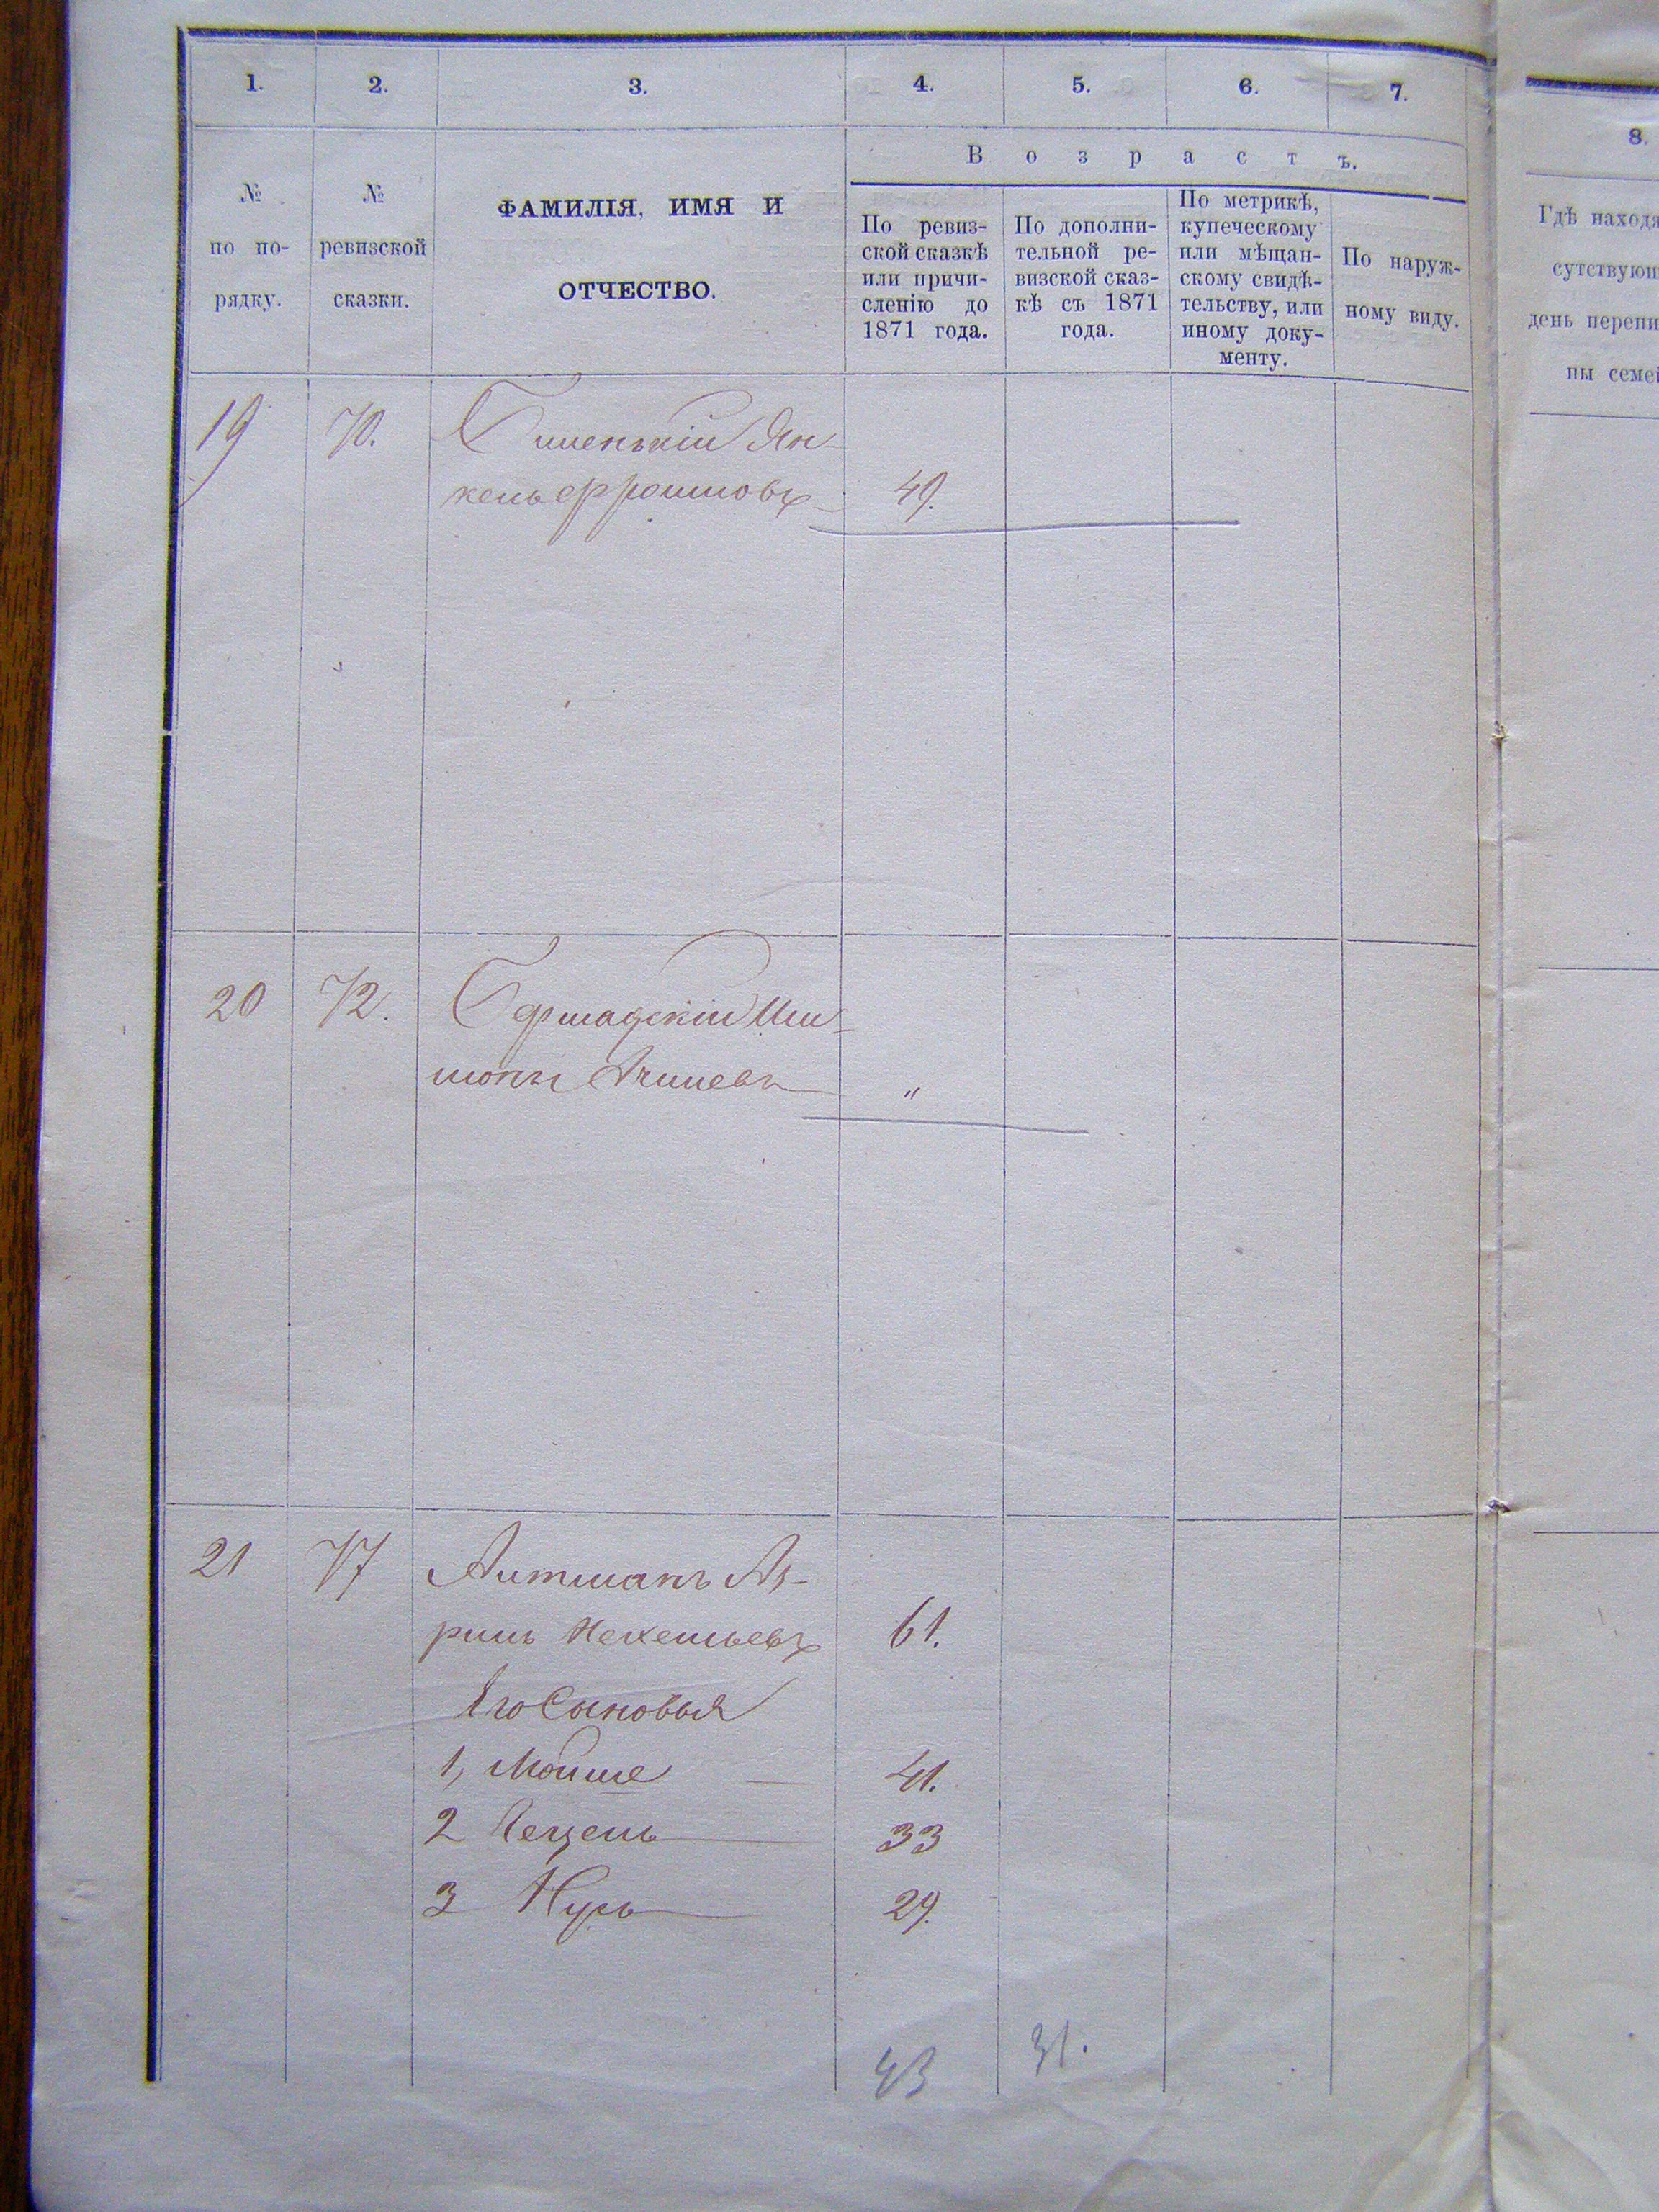 1. 2. 3. 4. 5. 6. 7.
В о з р а с т ъ.
№
по по-
рядку.
№
ревизской
сказки.
ФАМИЛІЯ, ИМЯ И
ОТЧЕСТВО.
По ревиз-
ской сказкѣ
или причи-
сленію до
1871 года.
По дополни-
тельной ре-
визской сказ-
кѣ съ 1871
года.
По метрикѣ,
купеческому
или мѣщан-
скому свидѣ-
тельству, или
иному доку-
менту.
По наруж-
ному виду.
19 70. Ян-
кель 49.
20 72. Бершадскій Ши-
монъ "
21 77
61.
Его Сыновья
1, Мойше 41.
2 33
3 29.
43 31.
8.
Гдѣ находя
сутствующ
день перепи
ны семей